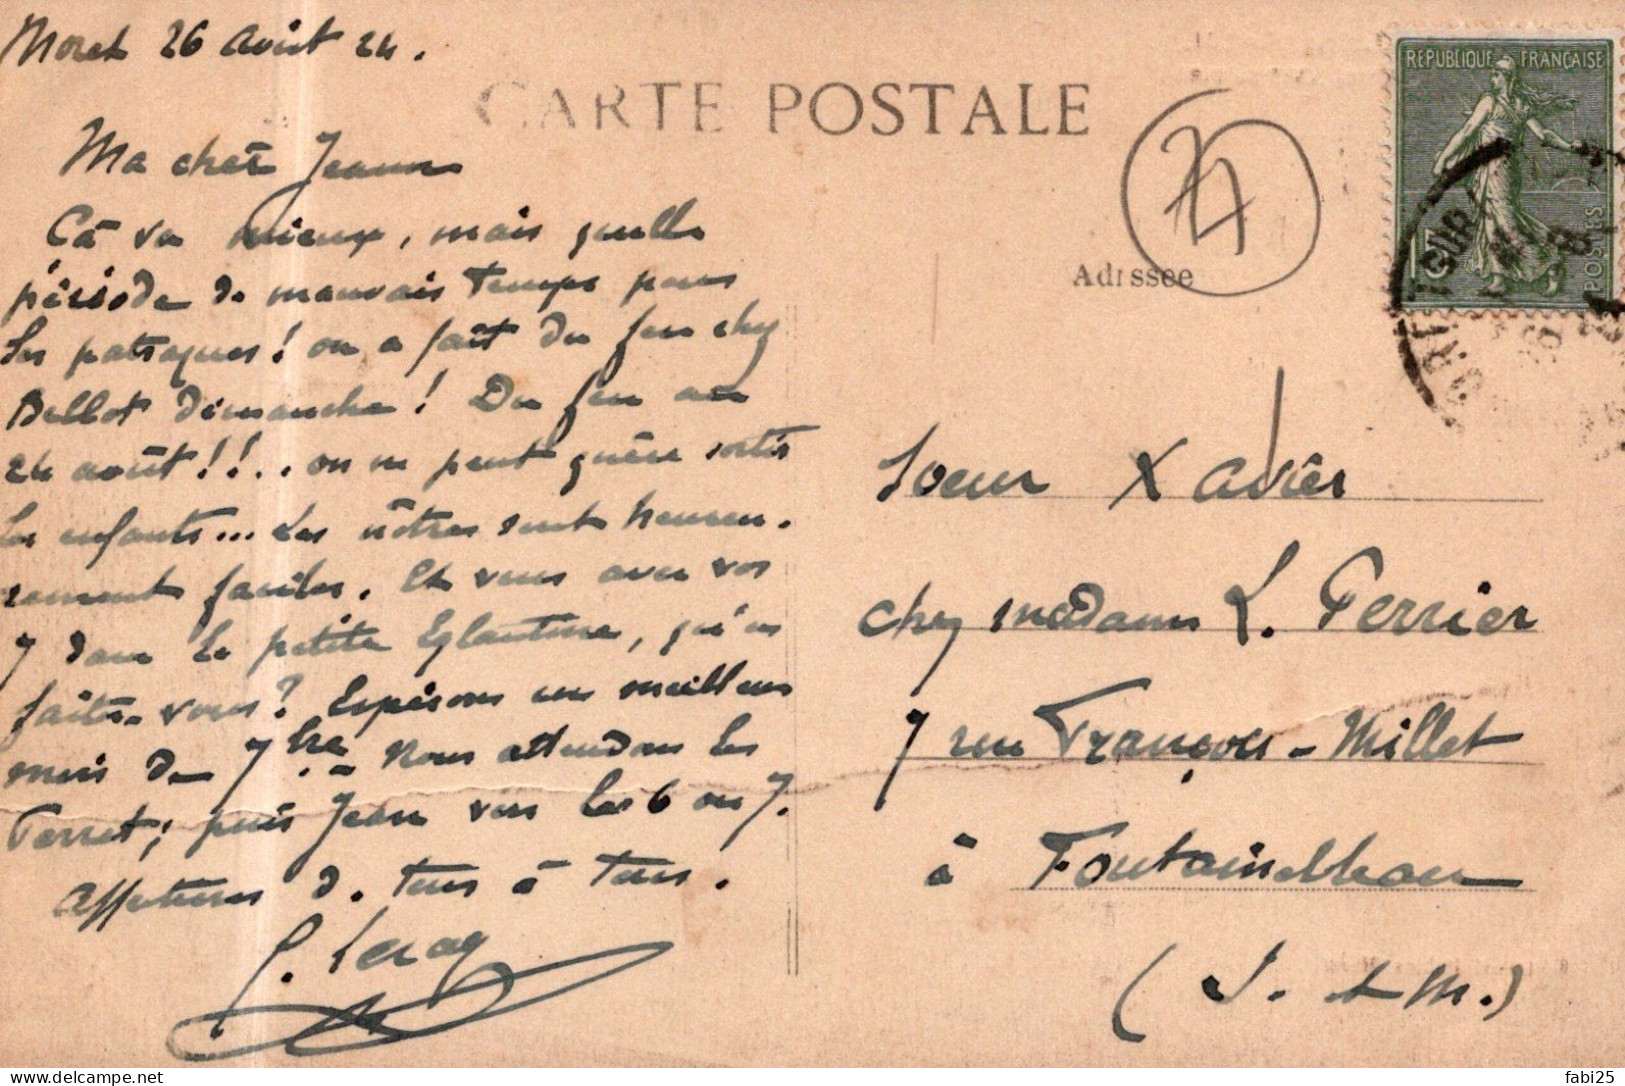 Moret 26 Août 24.
CARTE POSTALE
RÉPUBLIQUE FRANÇAISE
POSTES
Adressée
Ma cher Jeanne
Cà va mieux, mais quelle
période de mauvais temps pour
les patraques! on a fait du feu chez
Bellot dimanche! Du feu au
24 août!!.. on ne peut guère sortir
les enfants... Les nôtres sont heureu.
sement faciles. Et vous avec vos
7 dans la petite Eglantine, qu'en
faites-vous? Espérons un meilleur
mois de 7bre.- Nous attendons les
Perret; puis Jean vers les 6 ou 7.
Affectueus de tous à tous.
Soeur Xavier
chez madame L. Perrier
7 rue François-Millet
à Fontainebleau
(S. et M.)
fabi25